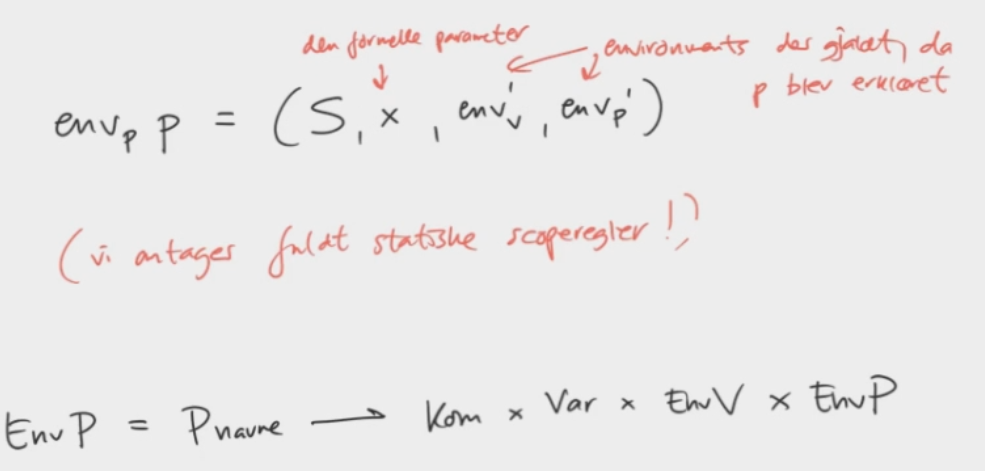 den formelle parameter
environments der gjaldt, da
p blev erklæret
env_p p = (S, x, env_v', env_p')
(vi antages fuldt statiske scoperegler!)
EnvP = Pnavne → Kom × Var × EnvV × EnvP